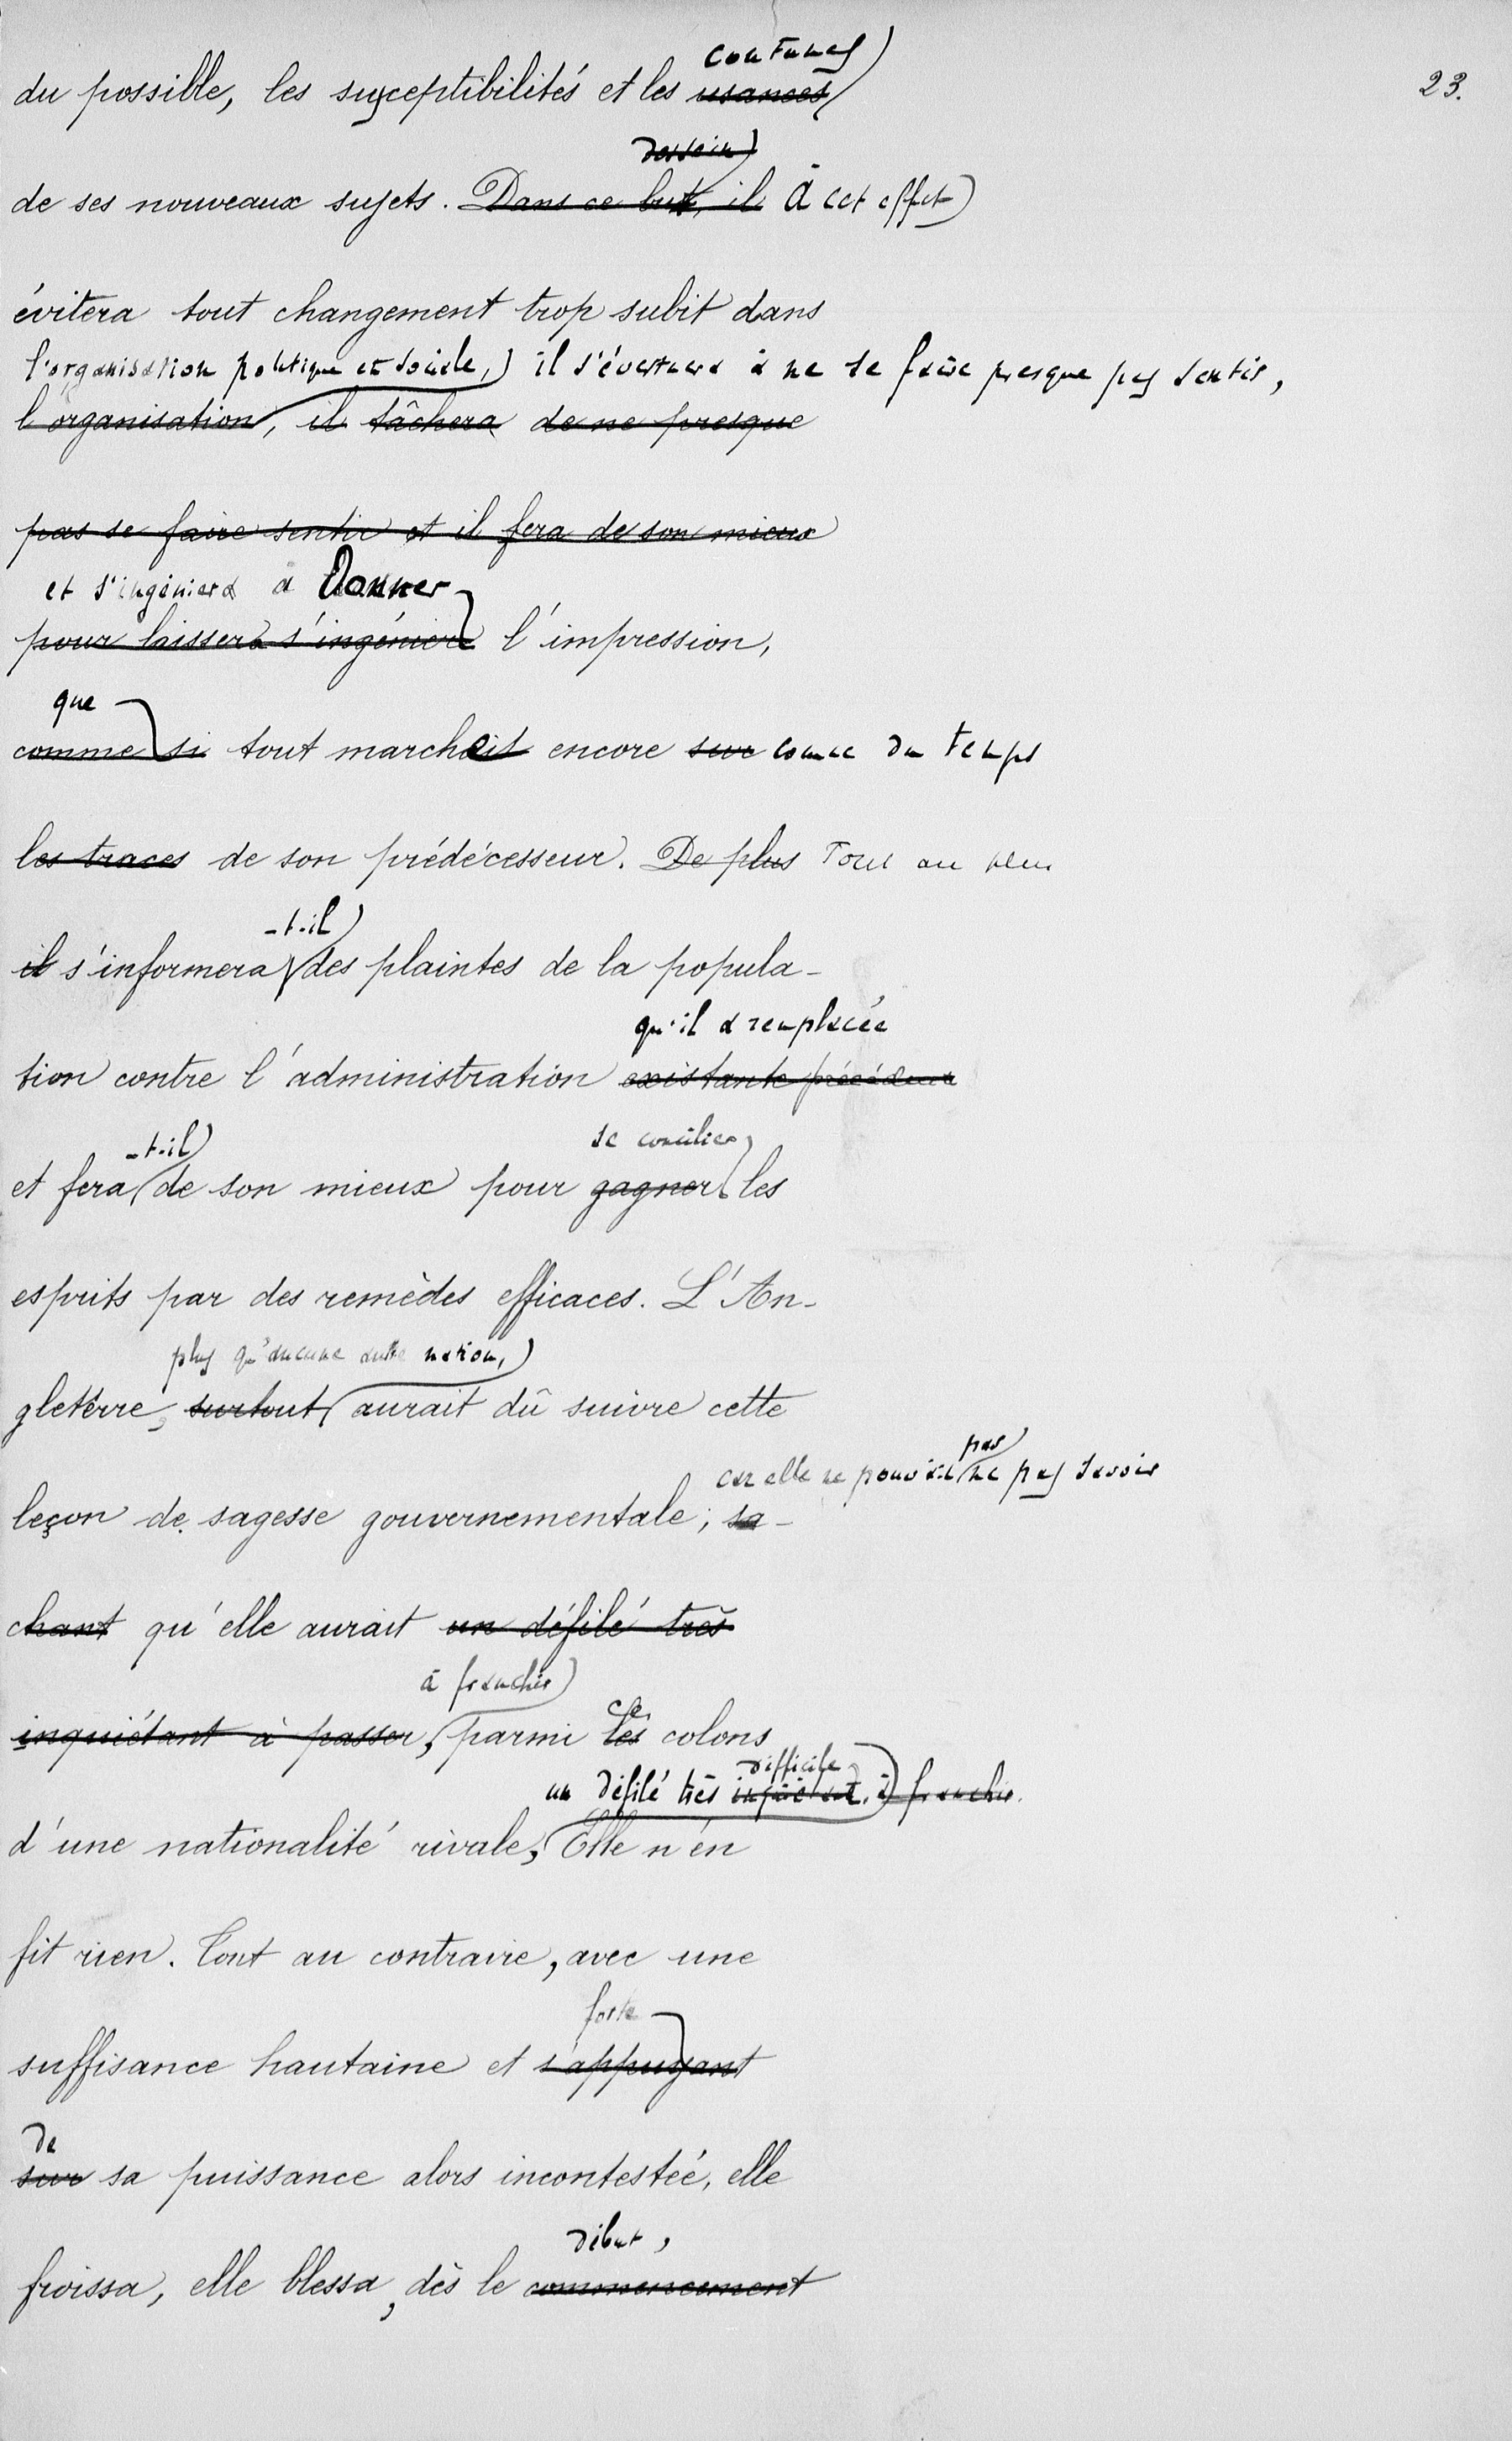 coutumes
du possible, les susceptibilités et les usances
23.
dessein
de ses nouveaux sujets. Dans ce but, il à cet effet
évitera tout changement trop subit dans
l'organisation politique et sociale, il s'évertuera à ne se faire presque pas sentir,
l'organisation, il tâchera de ne presque
pas se faire sentir et il fera de son mieux
et s'ingéniera à donner
pour laisser à s'ingénier l'impression,
que
comme si tout marchait encore sur comme du temps
les traces de son prédécesseur. De plus Tout au plus
-t-il
il s'informera des plaintes de la popula-
qu'il a remplacée
tion contre l'administration existante
-t-il se concilier
et fera de son mieux pour gagner les
esprits par des remèdes efficaces. L'An-
plus qu'aucune autre nation,
gleterre, surtout, aurait dû suivre cette
pas
car elle ne pouvait ne pas savoir
leçon de sagesse gouvernementale; sa-
chant qu'elle aurait un défilé très
à franchir
inquiétant à passer, parmi ces colons
difficile
un défilé très inquiétant, à franchir.
d'une nationalité rivale, Elle n'en
fit rien. Tout au contraire, avec une
forte
suffisance hautaine et s'appuyant
de
sur sa puissance alors incontestée, elle
début,
froissa, elle blessa, dès le commencement